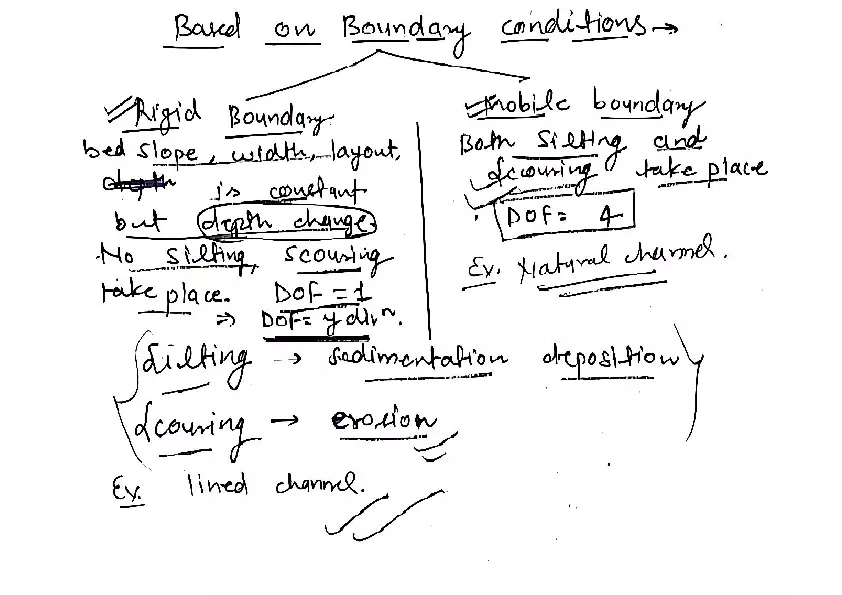 Based on Boundary conditions →
Rigid Boundary
bed slope, width, layout,
is constant
but depth change.
No silting, scousing
take place. DOF = 1
⇒ DOF = y dirⁿ.
Mobile boundary
Both silting and
scousing take place
DOF = 4
Ex. Natural channel.
silting → sedimentation deposition
scousing → erosion
Ex. lined channel.